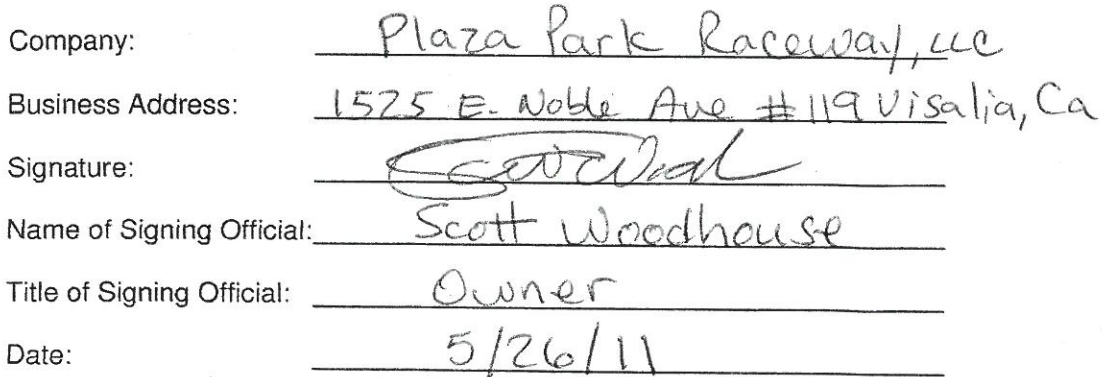 Company: Plaza Park Raceway, LLC
Business Address: 1525 E. Noble Ave #119 Visalia, Ca
Signature:
Name of Signing Official: Scott Woodhouse
Title of Signing Official: Owner
Date: 5/26/11